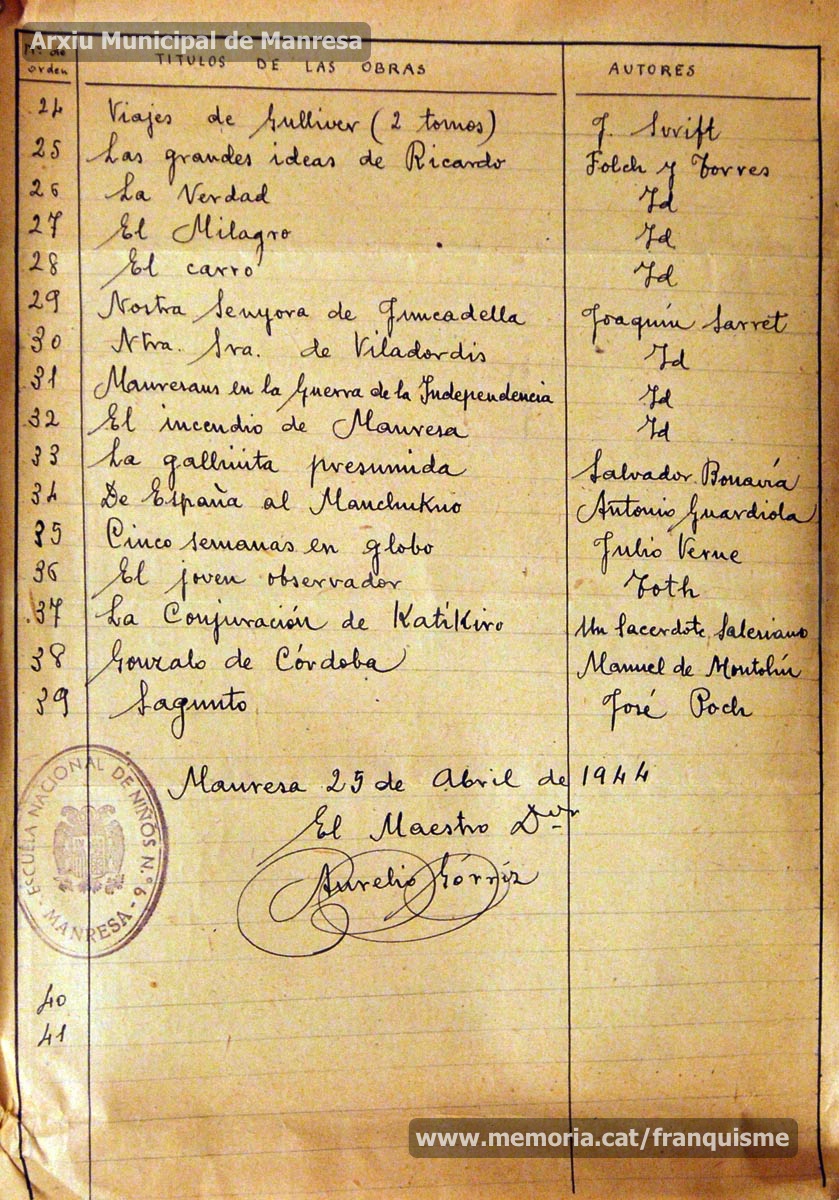 Arxiu Municipal de Manresa
Nº de orden TITULOS DE LAS OBRAS AUTORES
24 Viajes de Gulliver (2 tomos) J. Swift
25 Las grandes ideas de Ricardo Folch y Torres
26 La Verdad Id
27 El Milagro Id
28 El carro Id
29 Nostra Senyora de Juncadella Joaquín Sarret
30 Ntra. Sra. de Viladordis Id
31 Manresans en la Guerra de la Independencia Id
32 El incendio de Manresa Id
33 La gallinita presumida Salvador Bonavía
34 De España al Manchukuo Antonio Guardiola
35 Cinco semanas en globo Julio Verne
36 El joven observador Toth
37 La Conjuración de Katikiro Un Sacerdote Salesiano
38 Gonzalo de Córdoba Manuel de Montoliu
39 Sagunto José Poch
Manresa 25 de Abril de 1944
El Maestro Dor
Aurelio Górriz
ESCUELA NACIONAL DE NIÑOS N.º 6 - MANRESA -
40
41
www.memoria.cat/franquisme